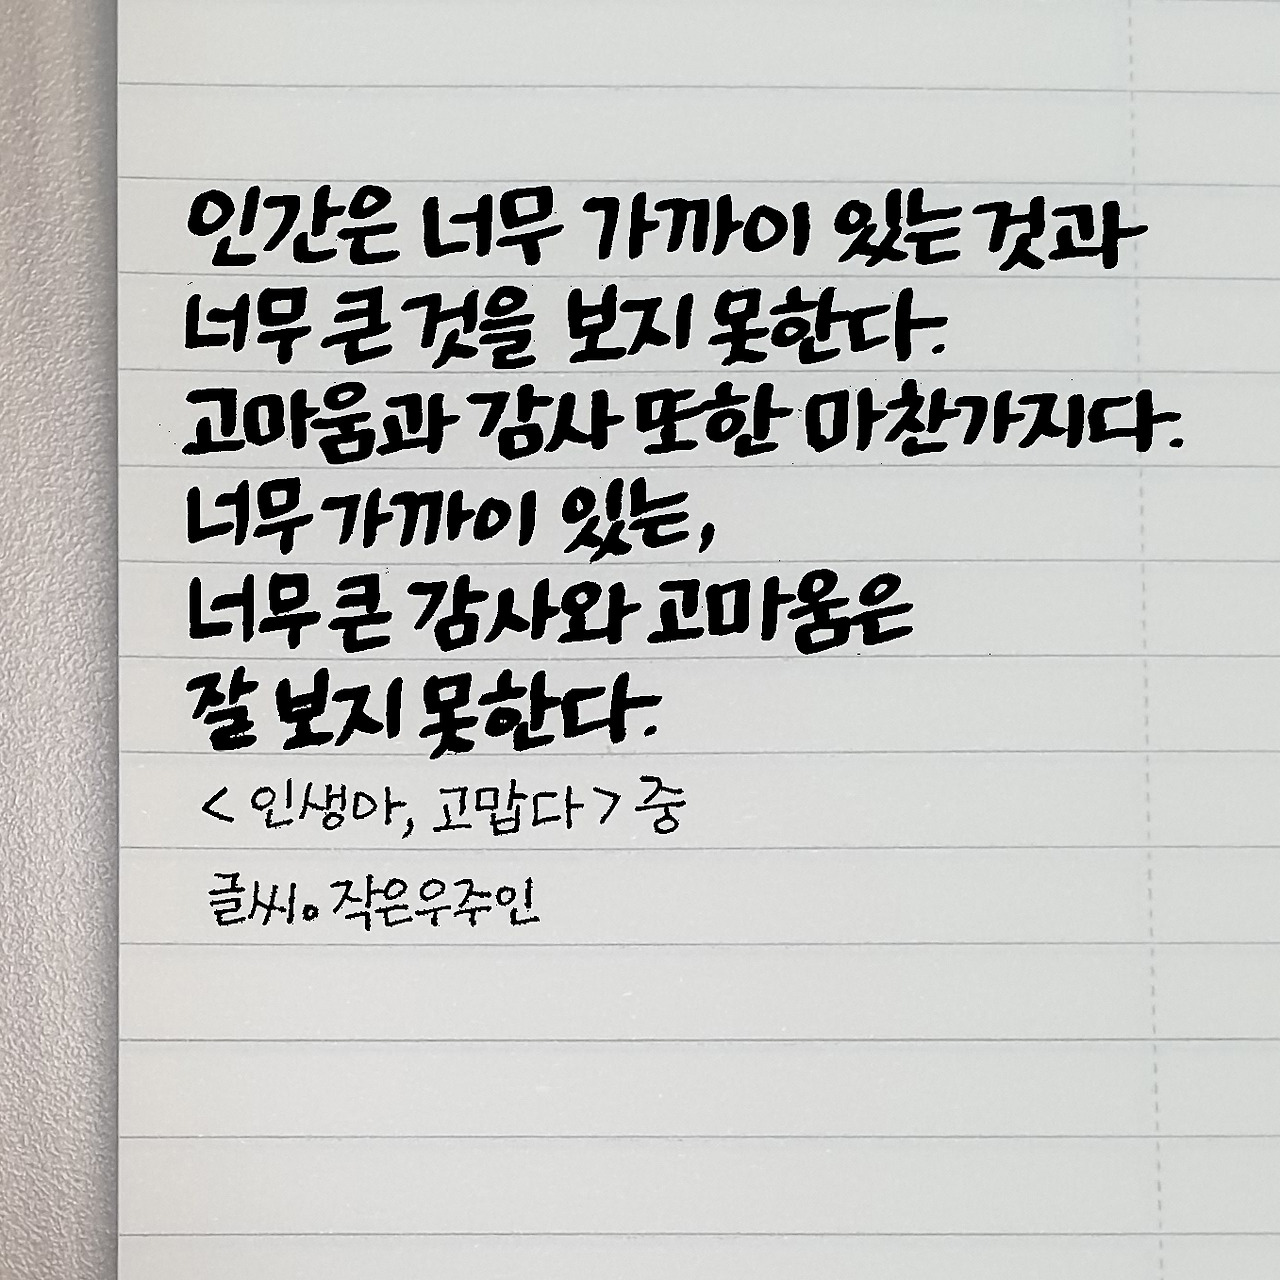 인간은 너무 가까이 있는 것과
너무 큰 것을 보지 못한다.
고마움과 감사 또한 마찬가지다.
너무 가까이 있는,
너무 큰 감사와 고마움은
잘 보지 못한다.
<인생아, 고맙다> 중
글씨。작은우주인